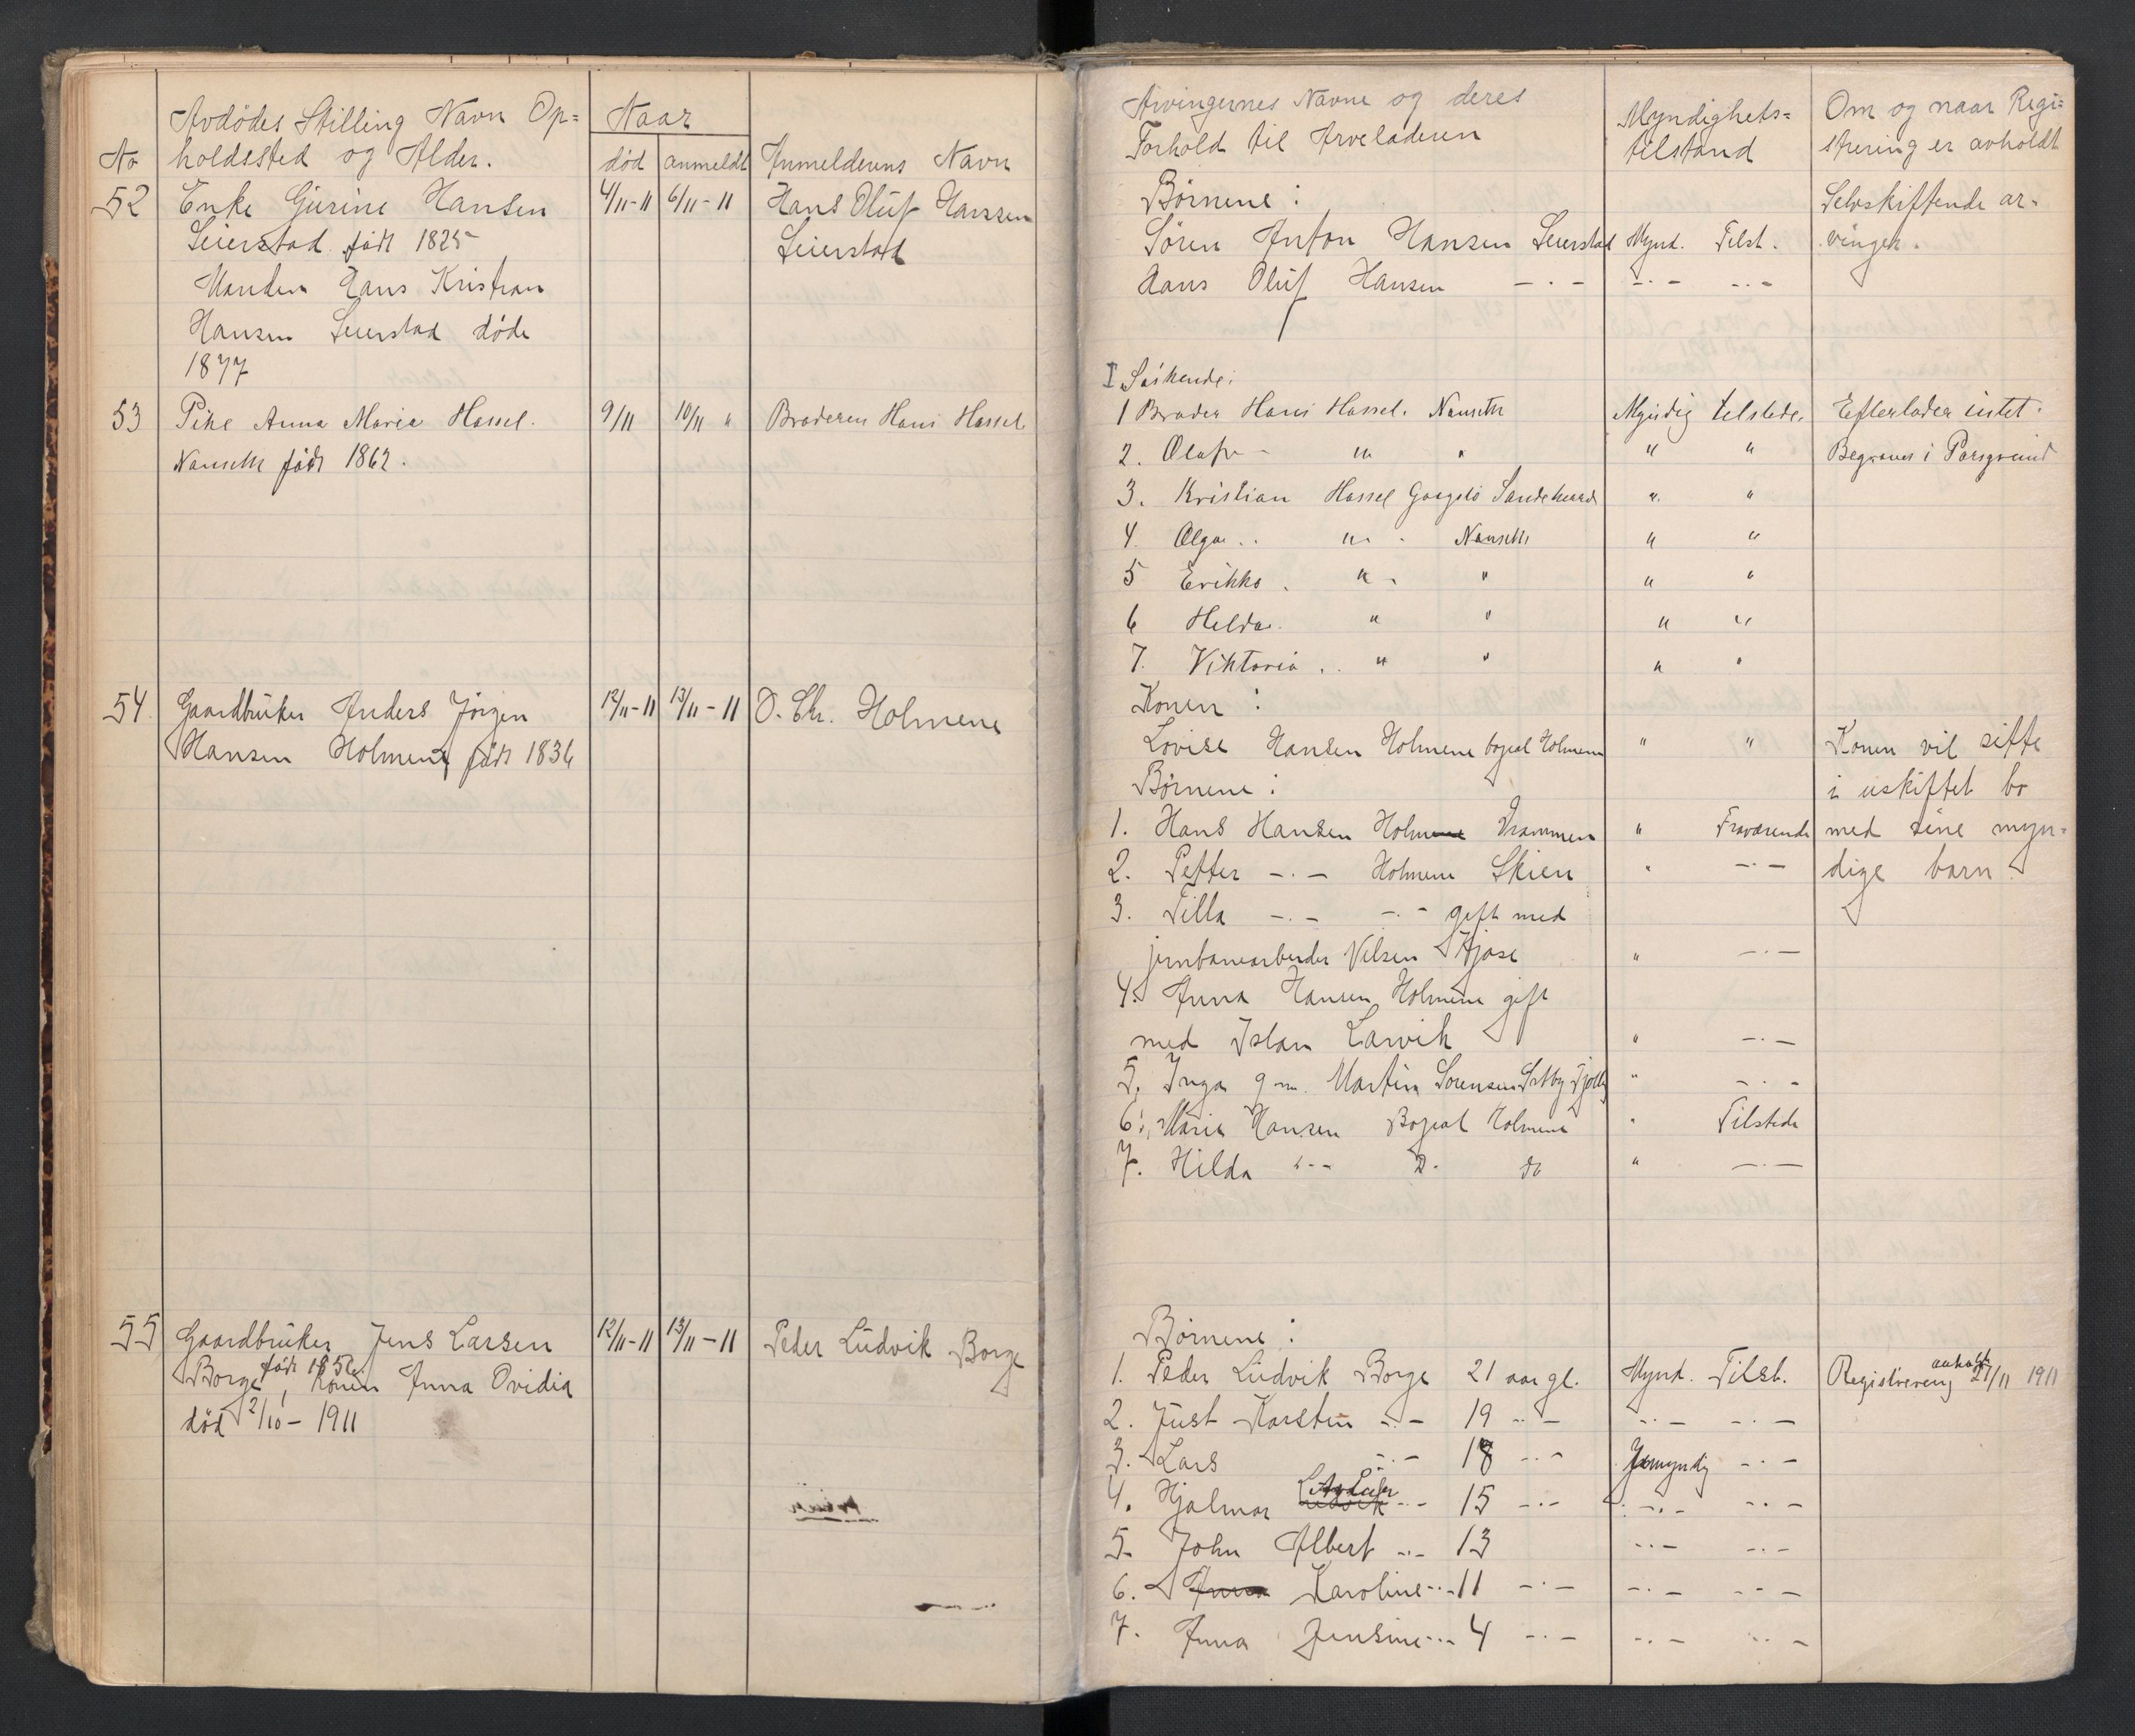 No
Avdødes Stilling Navn Op=
holdssted og Alder.
Naar
død anmeldt
Anmelderens Navn
52 Enke Gurine Hansen 4/11-11 6/11-11 Hans Oluf Hanssen
Seierstad født 1825 Seierstad
Manden Hans Kristian
Hansen Seierstad døde
1877
53 Pike Anna Maria Hassel. 9/11 10/11 " Broderen Hans Hassel
Nanseth født 1862.
54 Gaardbruker Anders Jörgen 12/11-11 13/11-11 O. Chr. Holmene
Hansen Holmene født 1836
55 Gaardbruker Jens Larsen 12/11-11 13/11-11 Peder Ludvik Borge
Borge født 1856, Konen Anna Ovidia
død 2/10-1911
Arvingernes Navne og deres
Forhold til Arveladeren
Myndighets=
tilstand
Om og naar Regi=
strering er avholdt
Børnene:
Selvskiftende ar-
Sören Anton Hansen Seierstad Mynd. Tilst. vinger.
Hans Oluf Hansen -.- -.- -.-
I Søskende:
1 Broder Hans Hassel. Nanseth Myndig tilstede. Efterlader intet.
2. Olaf - " " " " Begraves i Porsgrund
3. Kristian Hassel Sandeherred " "
4 Olga .. " . Nanseth " "
5 Erikka . " - " " "
6 Helda. " " " "
7. Viktoria .. " " " "
Konen:
Lovise Hansen Holmene bopæl Holmene " " Konen vil sitte
Børnene: i uskiftet bo
1. Hans Hansen Holmene Drammen " Fraværende med sine myn=
2. Petter -.- Holmene Skien " -.- dige barn.
3. Tilla -.- -.- gift med
jernbanearbeider Nilsen Kjose " -.-
4. Anna Hansen Holmene gift
med Larvik " -.-
5. Inga g.m. Martin Sorensen Tjölling " -.-
6. Maria Hansen Bopæl Holmene " Tilstede
7. Hilda -.- D. do " -.-
Børnene:
1. Peder Ludvik Borge 21 aar gl. Mynd. Tilst. Registrering avholdt 27/11 1911
2. Just Karsten -.- 19 -.- -.- -.-
3. Lars -.- 18 -.- Umyndig -.-
4. Hjalmar -.- 15 -.- -.- -.-
5. John Albert -.- 13 -.- -.-
6. Anna Karoline -.- 11 -.- -.- -.-
7. Anna Jensine -.- 4 -.- -.- -.-